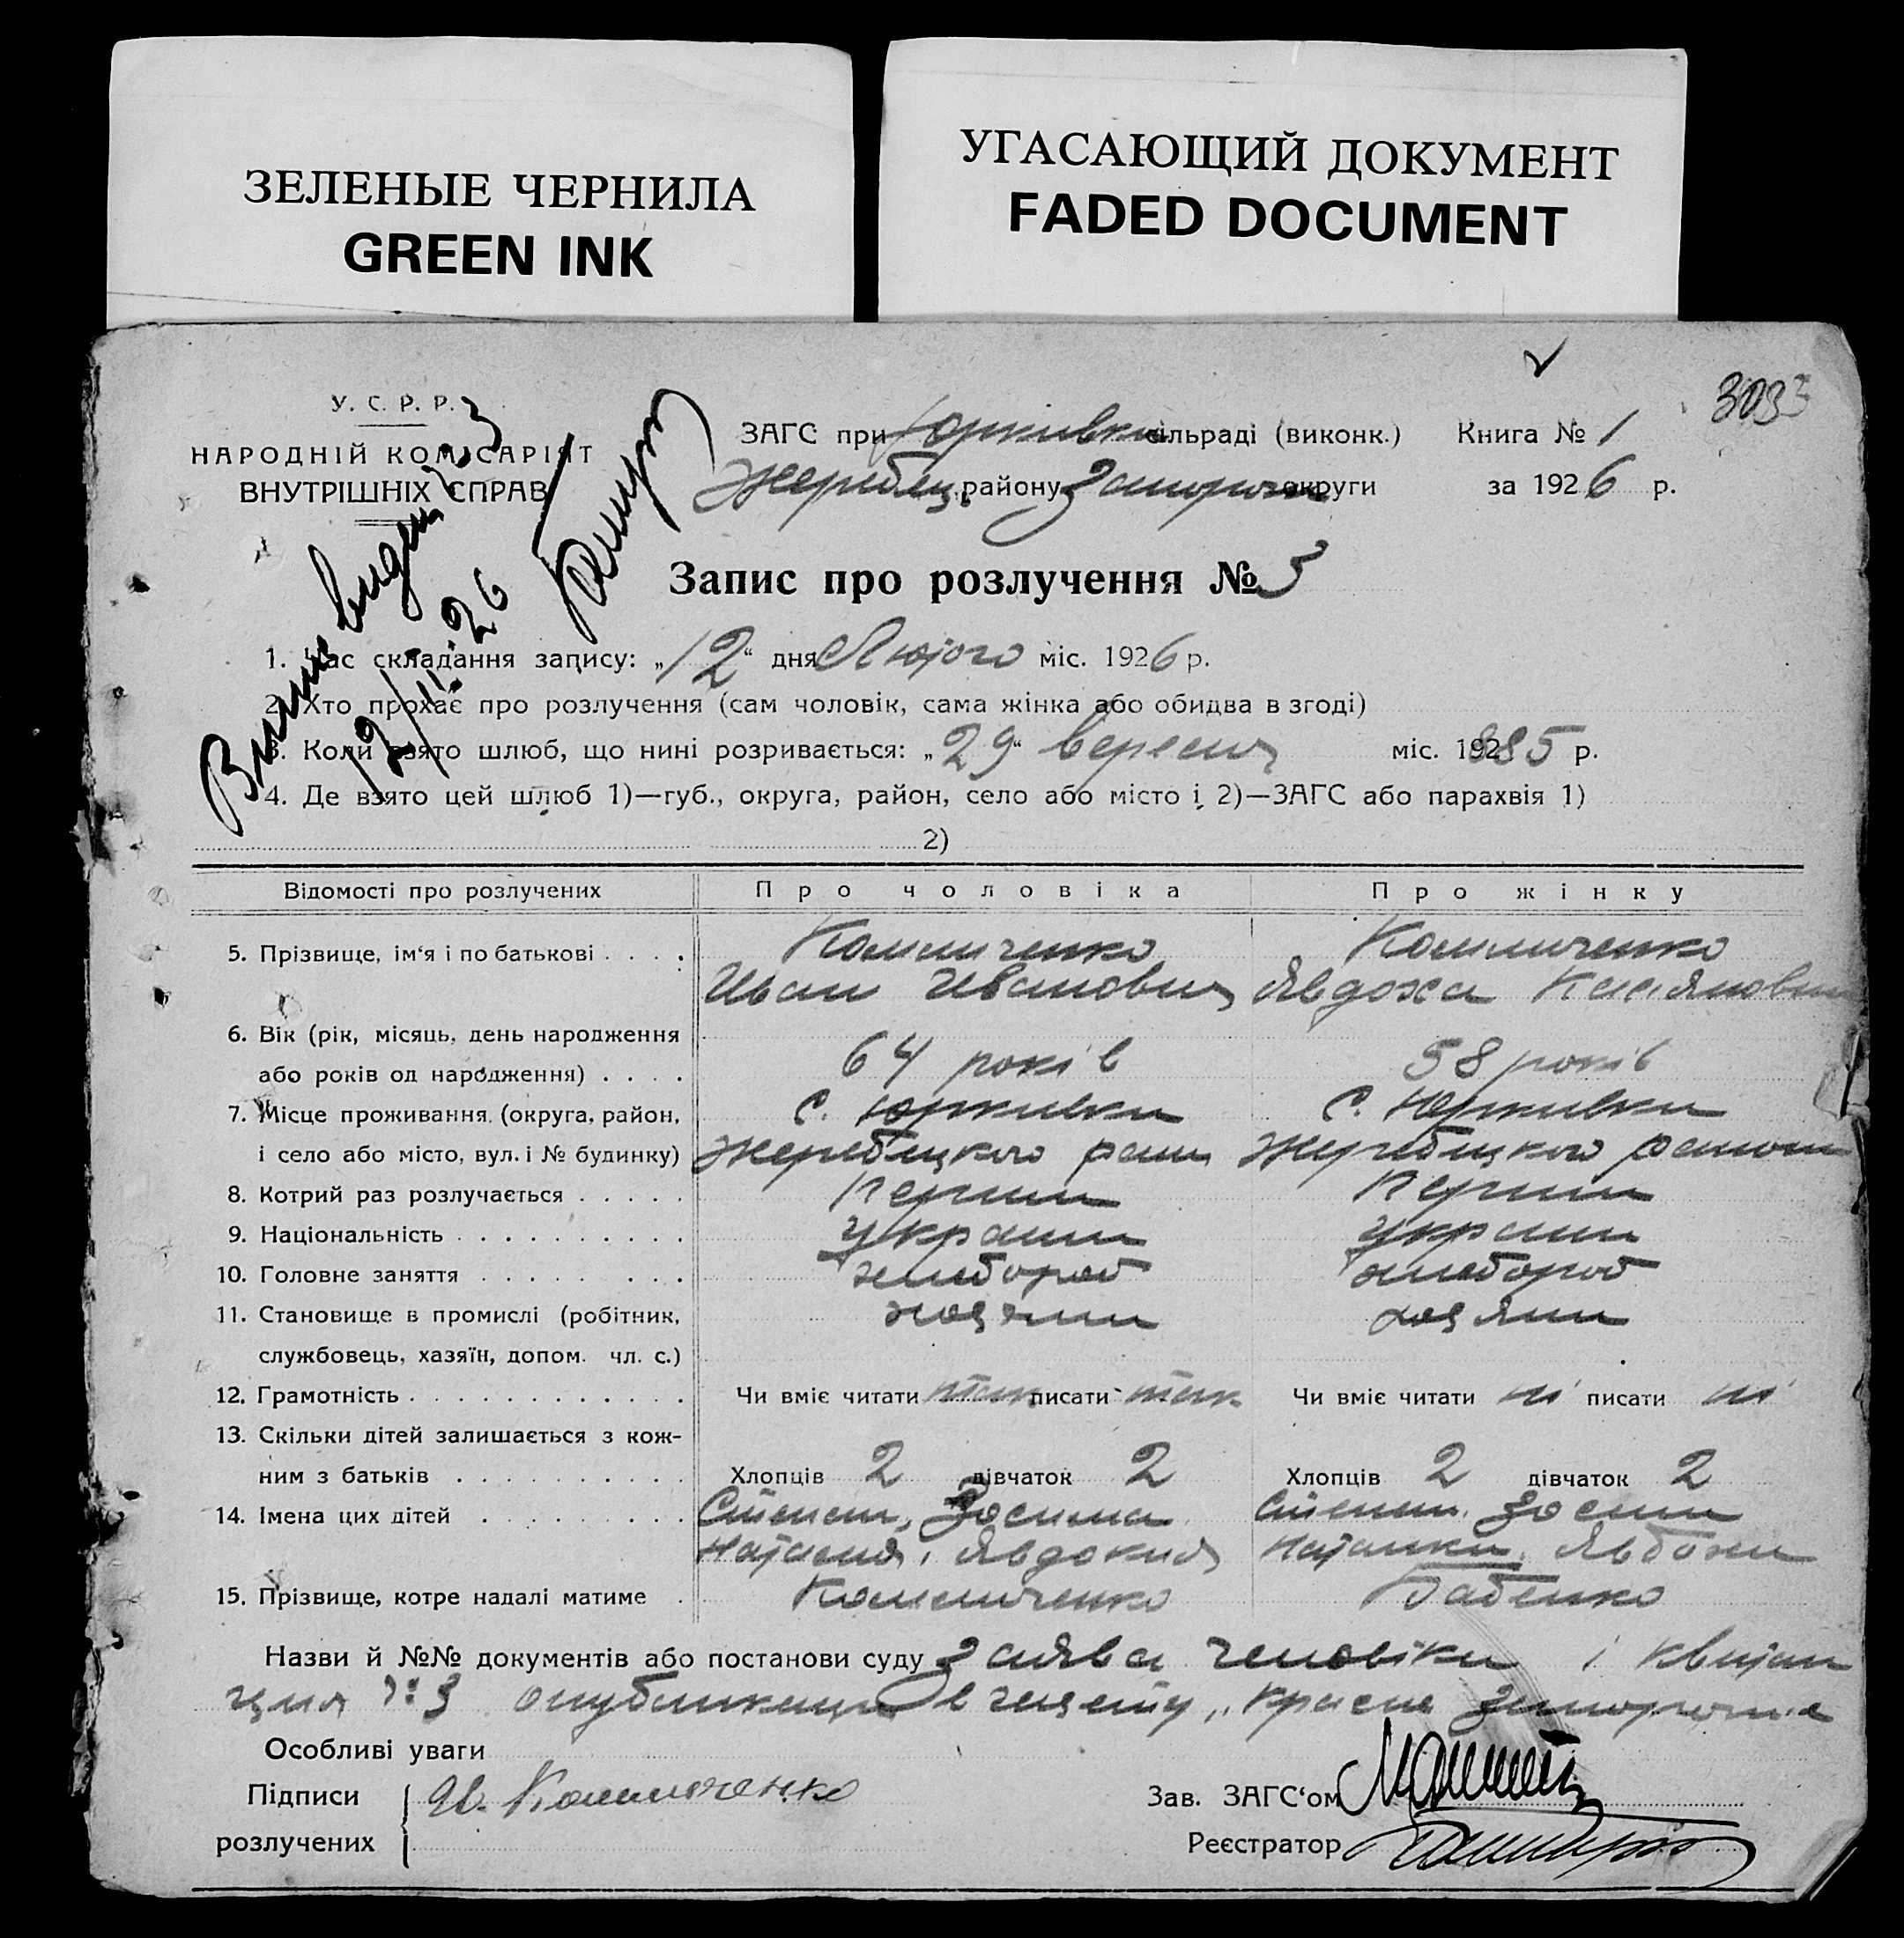 ЗЕЛЕНЫЕ ЧЕРНИЛА
GREEN INK
УГАСАЮЩИЙ ДОКУМЕНТ
FADED DOCUMENT
У. С. Р. Р.
НАРОДНІЙ КОМІСАРІЯТ
ВНУТРІШНІХ СПРАВ
ЗАГС при Юрківка сільраді (виконк.) Книга № 1
Жеребец. району Запорож округи за 1926 р.
Запис про розлучення №
12/II 26
1. Час складання запису: „12“ дня Лютого міс. 1926 р.
2. Хто прохає про розлучення (сам чоловік, сама жінка або обидва в згоді)
3. Коли взято шлюб, що нині розривається: „29“ вересня міс. 1885 р.
4. Де взято цей шлюб 1)—губ., округа, район, село або місто і 2)—ЗАГС або парахвія 1)
2)
Відомості про розлучених Про чоловіка Про жінку
5. Прізвище, ім‘я і по батькові
Иван Иванович Явдоха
6. Вік (рік, місяць, день народження
або років од народження) 64 років 58 років
7. Місце проживання (округа, район, с. Юркивки с. Юркивки
і село або місто, вул. і № будинку) Жеребецкого раион Жеребецкого раиону
8. Котрий раз розлучається Перший Перший
9. Національність украин украин
10. Головне заняття хлебороб хлебороб
11. Становище в промислі (робітник, хозяин хозяин
службовець, хазяїн, допом. чл. с.)
12. Грамотність Чи вміє читати так писати так Чи вміє читати ні писати ні
13. Скільки дітей залишається з кож-
ним з батьків Хлопців 2 дівчаток 2 Хлопців 2 дівчаток 2
14. Імена цих дітей Степан, Зосима Степан, Зосим
Явдокия
15. Прізвище, котре надалі матиме Бабенко
Назви й №№ документів або постанови суду заява чоловіка і квитан
ция № 3 публикации в газету „Красне Запороже
Особливі уваги
Підписи
розлучених
Зав. ЗАГС‘ом
Реєстратор